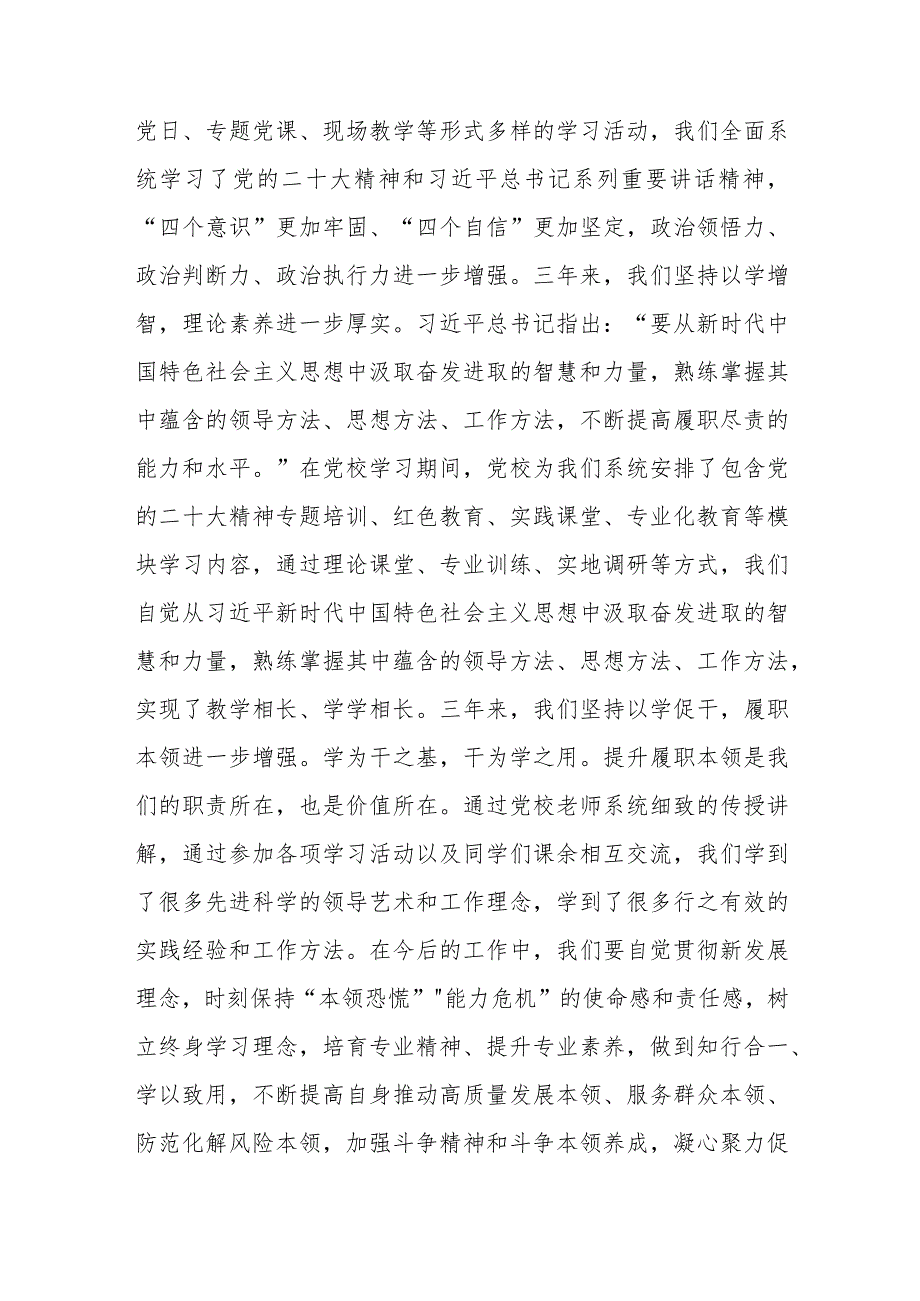 党日、专题党课、现场教学等形式多样的学习活动，我们全面系
统学习了党的二十大精神和习近平总书记系列重要讲话精神，
“四个意识”更加牢固、“四个自信”更加坚定，政治领悟力、
政治判断力、政治执行力进一步增强。三年来，我们坚持以学增
智，理论素养进一步厚实。习近平总书记指出：“要从新时代中
国特色社会主义思想中汲取奋发进取的智慧和力量，熟练掌握其
中蕴含的领导方法、思想方法、工作方法，不断提高履职尽责的
能力和水平。”在党校学习期间，党校为我们系统安排了包含党
的二十大精神专题培训、红色教育、实践课堂、专业化教育等模
块学习内容，通过理论课堂、专业训练、实地调研等方式，我们
自觉从习近平新时代中国特色社会主义思想中汲取奋发进取的智
慧和力量，熟练掌握其中蕴含的领导方法、思想方法、工作方法，
实现了教学相长、学学相长。三年来，我们坚持以学促干，履职
本领进一步增强。学为干之基，干为学之用。提升履职本领是我
们的职责所在，也是价值所在。通过党校老师系统细致的传授讲
解，通过参加各项学习活动以及同学们课余相互交流，我们学到
了很多先进科学的领导艺术和工作理念，学到了很多行之有效的
实践经验和工作方法。在今后的工作中，我们要自觉贯彻新发展
理念，时刻保持“本领恐慌”"能力危机”的使命感和责任感，树
立终身学习理念，培育专业精神、提升专业素养，做到知行合一、
学以致用，不断提高自身推动高质量发展本领、服务群众本领、
防范化解风险本领，加强斗争精神和斗争本领养成，凝心聚力促